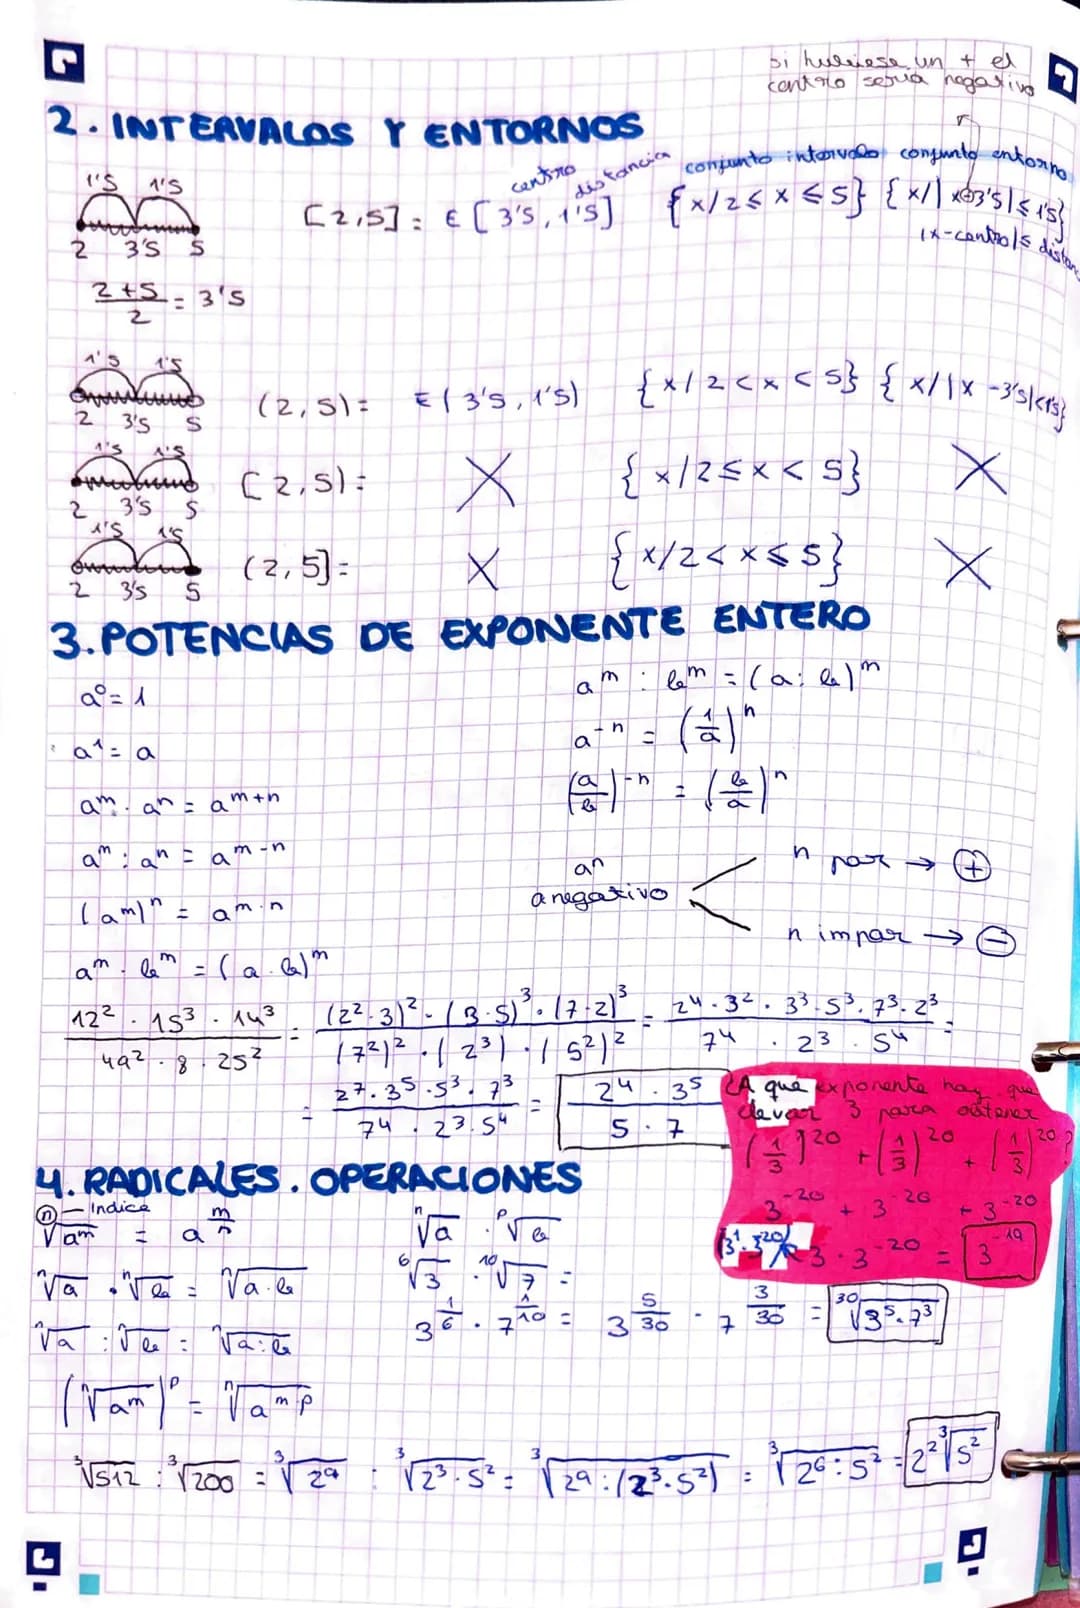 si huviese un + el
centro seria negativo
2. INTERVALOS Y ENTORNOS
centro distancia conjunto intervalo conjunto entorno
1'5 1'5
[2,5]: E [3'5, 1'5] {x/2 ≤ x ≤ 5} {x/|x-3'5| ≤ 1'5}
2 3'5 5
|x-centro|≤ distan
2+5/2 = 3'5
1'5 1'5
(2,5)= E(3'5, 1'5) {x/2<x<5} {x/|x-3'5|<1'5}
2 3'5 5
1'5 1'5
[2,5)= X {x/2≤x<5} X
2 3'5 5
1'5 1'5
(2,5]= X {x/2<x≤5} X
2 3'5 5
3. POTENCIAS DE EXPONENTE ENTERO
a⁰ = 1
a¹ = a
aᵐ · aⁿ = aᵐ⁺ⁿ
aᵐ : aⁿ = aᵐ⁻ⁿ
(aᵐ)ⁿ = aᵐ·ⁿ
aᵐ · bᵐ = (a·b)ᵐ
aᵐ : bᵐ = (a:b)ᵐ
a⁻ⁿ = (1/a)ⁿ
(a/b)⁻ⁿ = (b/a)ⁿ
aⁿ
a negativo
n par → +
n impar → −
12² · 15³ · 14³ / 49² · 8 · 25² = (2²·3)² · (3·5)³ · (7·2)³ / (7²)² · (2³) · (5²)² = 2⁴·3² · 3³·5³ · 7³·2³ / 7⁴ · 2³ · 5⁴ =
= 2⁷·3⁵·5³·7³ / 7⁴ · 2³·5⁴ = 2⁴ · 3⁵ / 5 · 7
¿A que exponente hay que
elevar 3 para obtener
(1/3)²⁰ + (1/3)²⁰ + (1/3)²⁰?
3⁻²⁰ + 3⁻²⁰ + 3⁻²⁰
3 · 3⁻²⁰ = 3⁻¹⁹
4. RADICALES. OPERACIONES
n — Indice
ⁿ√aᵐ = a^m/n
ⁿ√a · ⁿ√b = ⁿ√a·b
ⁿ√a : ⁿ√b = ⁿ√a:b
(ⁿ√aᵐ)ᵖ = ⁿ√aᵐ·ᵖ
ⁿ√a · ᵖ√b
⁶√3 · ¹⁰√7 =
3^1/6 · 7^1/10 = 3^5/30 · 7^3/30 = ³⁰√3⁵·7³
³√512 : ³√200 = ³√2⁹ : ³√2³·5² = ³√2⁹:(2³·5²) = ³√2⁶:5² = 2² ³√5²